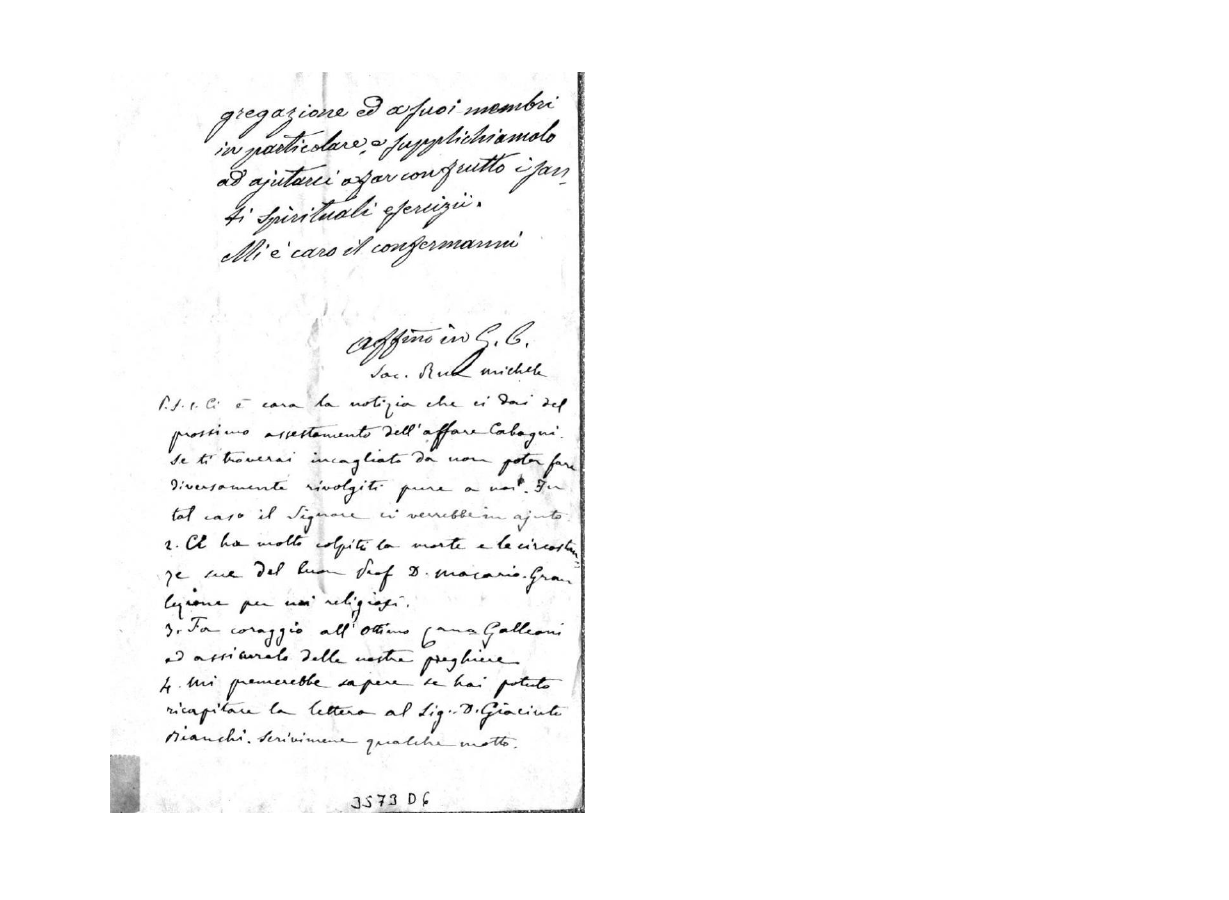 gregazione ed a suoi membri
in particolare, e supplichiamolo
ad ajutarci a far con frutto i san-
ti spirituali esercizii.
Mi è caro il confermarmi
Affmo in G. C.
Sac. Rua Michele
P.S. 1. Ci è cara la notizia che ci dai del
prossimo assestamento dell'affare Cabagni.
Se ti troverai incagliato da non poter fare
diversamente rivolgiti pure a noi. In
tal caso il Signore ci verrebbe in ajuto.
2. Ci ha molto colpiti la morte e le circostan-
ze sue del buon Prof D. Macario. Gran
lezione per noi religiosi.
3. Fa coraggio all'ottimo Galleani
ed assicuralo delle nostre preghiere
4. Mi premerebbe sapere se hai potuto
ricapitare la lettera al Sig. D. Giacinto
Bianchi. Scrivimene qualche motto.
3573 D6